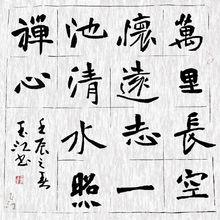 萬里長空
懷遠志一
池清水照
禪心
壬辰之春
玉江书